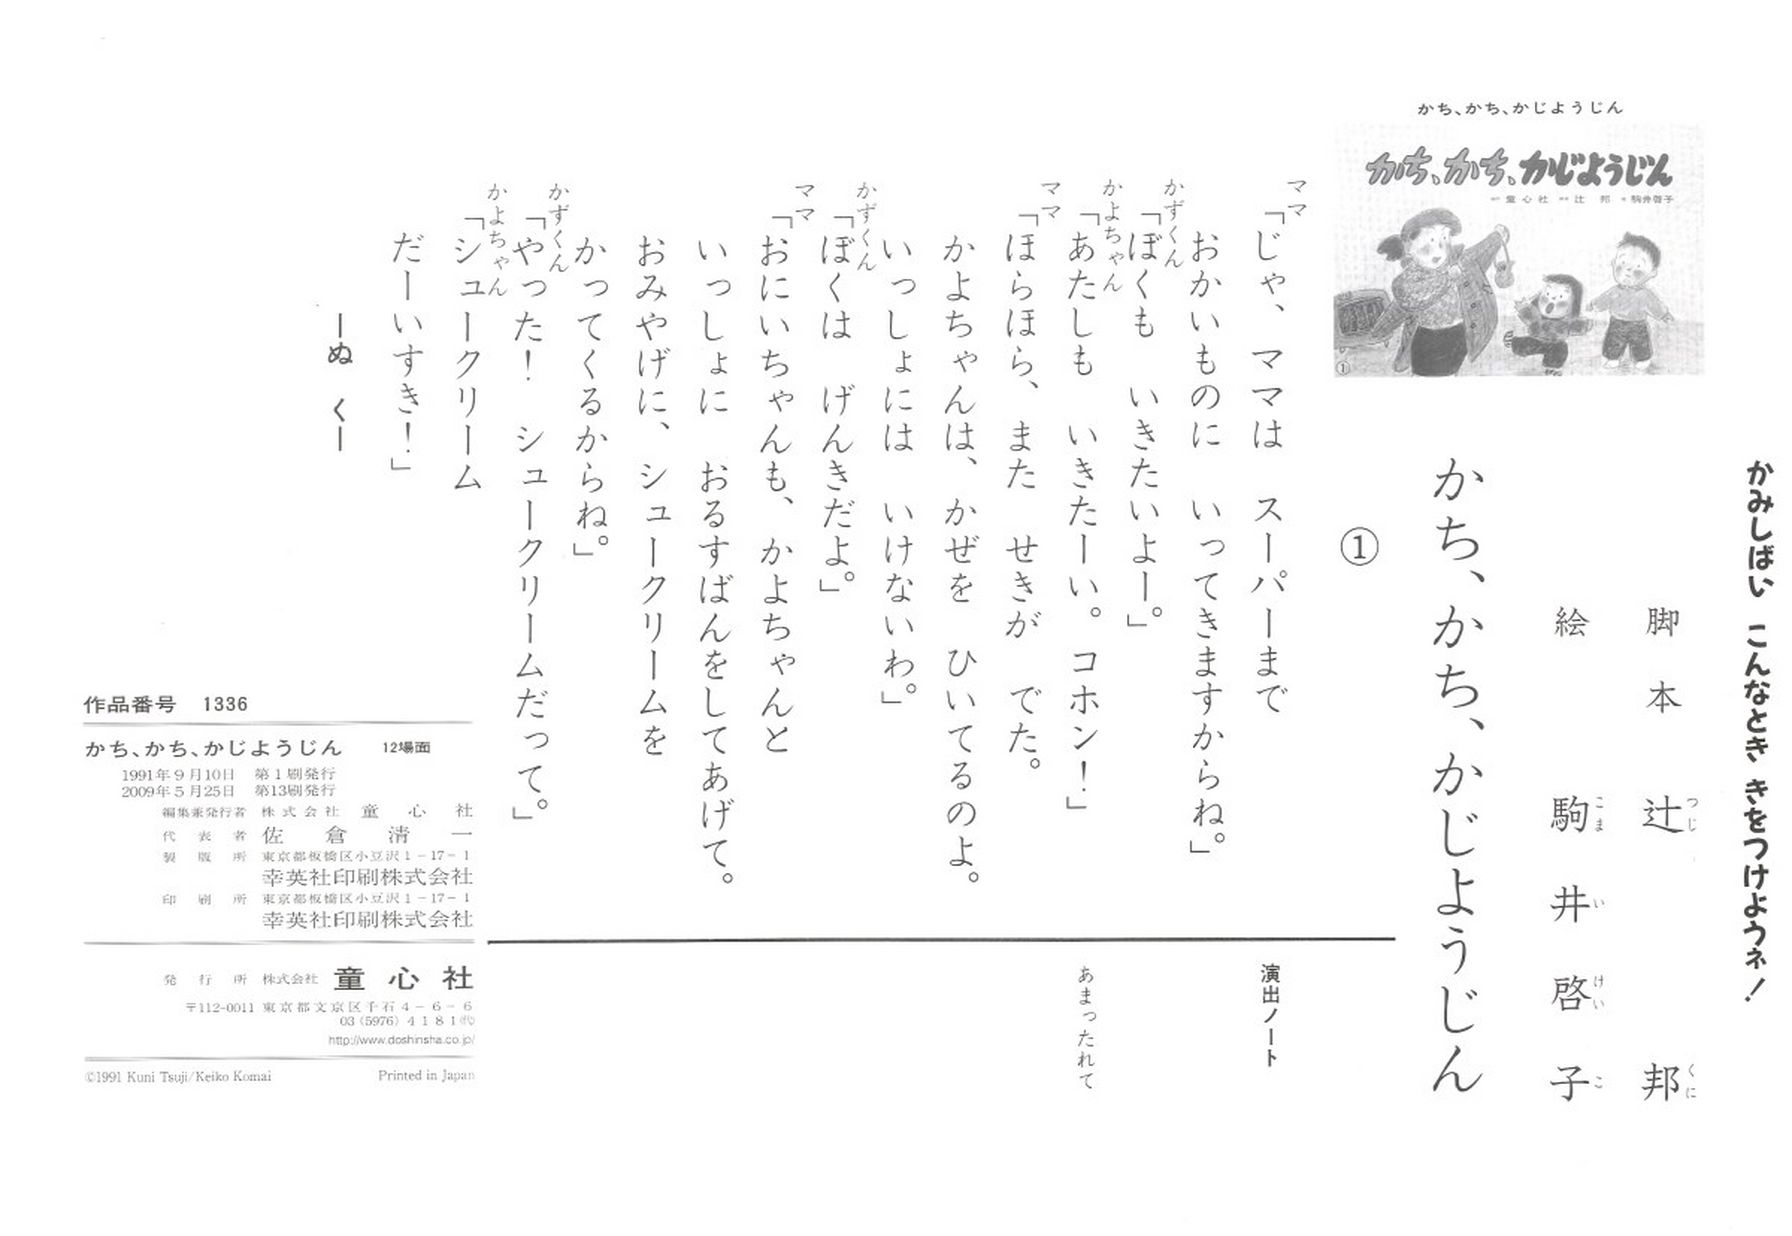 かみしばい こんなとき きをつけようネ！
脚本 辻 邦
つじ くに
絵 駒井啓子
こま い けい こ
かち、かち、かじようじん
かち、かち、かじようじん
かち、かち、かじようじん
童心社 辻 邦 駒井啓子
①
①
ママ
「じゃ、ママは スーパーまで
おかいものに いってきますからね。」
かずくん
「ぼくも いきたいよー。」
かよちゃん
「あたしも いきたーい。コホン！」
ママ
「ほらほら、また せきが でた。
かよちゃんは、かぜを ひいてるのよ。
いっしょには いけないわ。」
かずくん
「ぼくは げんきだよ。」
ママ
「おにいちゃんも、かよちゃんと
いっしょに おるすばんをしてあげて。
おみやげに、シュークリームを
かってくるからね。」
かずくん
「やった！ シュークリームだって。」
かよちゃん
「シュークリーム
だーいすき！」
ーぬ くー
演出ノート
あまったれて
作品番号 1336
かち、かち、かじようじん 12場面
1991年9月10日 第1刷発行
2009年5月25日 第13刷発行
編集兼発行者 株式会社 童心社
代表者 佐倉清一
製版所 東京都板橋区小豆沢1-17-1
幸英社印刷株式会社
印刷所 東京都板橋区小豆沢1-17-1
幸英社印刷株式会社
発行所 株式会社 童心社
〒112-0011 東京都文京区千石4-6-6
03(5976)4181(代)
http://www.doshinsha.co.jp/
©1991 Kuni Tsuji/Keiko Komai Printed in Japan